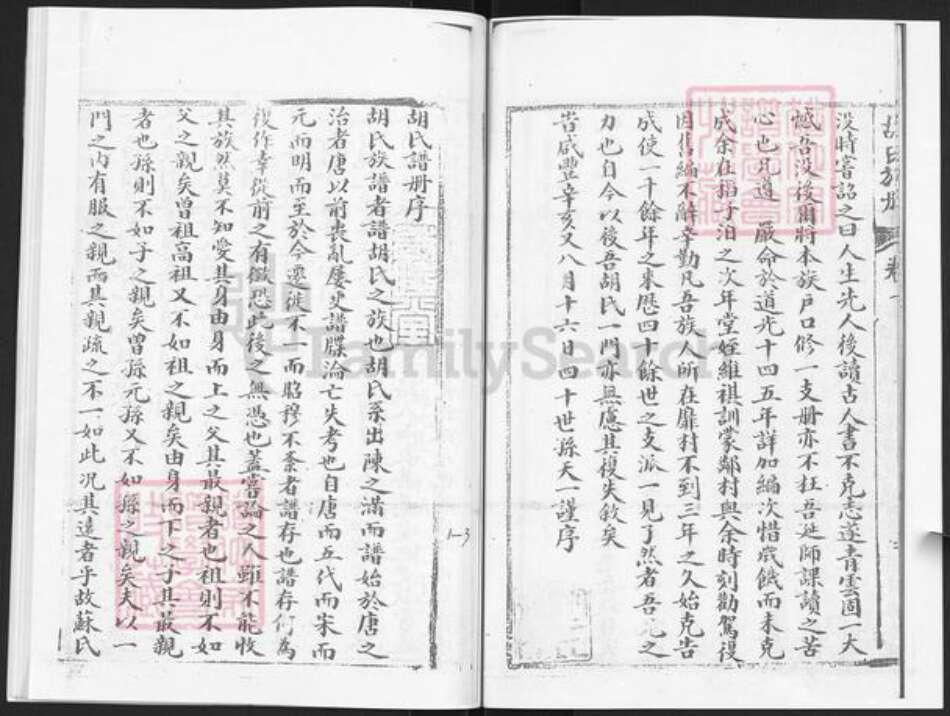 胡氏族册 卷一
没時嘗詔之曰人生先人後讀古人書不克志遂青雲固一大
憾吾没後爾將本族戶口修一支册亦不枉吾延師課讀之苦
心也凡遵 嚴命於道光十四五年詳加編次惜歲饑而未克
成余在稻子泊之次年堂姪維祺訓蒙鄰村與余時刻勸駕復
因舊編不辭辛勤凡吾族人所在靡村不到三年之久始克告
成使一千餘年之來歷四十餘世之支派一見了然者吾兄之
力也自今以後吾胡氏一門亦無慮其複失敘矣
旹咸豐辛亥又八月十六日四十世孫天一謹序
胡氏譜册序
胡氏族譜者譜胡氏之族也胡氏系出陳之滿而譜始於唐之
治者唐以前喪亂屢更譜牒淪亡失考也自唐而五代而宋而
元而明而至於今遷徙不一而昭穆不紊者譜存也譜存何為
復作幸從前之有徵恐此後之無憑也蓋嘗論之人雖不能收
其族然莫不知愛其身由身而上之父其最親者也祖則不如
父之親矣曾祖高祖又不如祖之親矣由身而下之子其最親
者也孫則不如子之親矣曾孫元孫又不如孫之親矣夫以一
門之內有服之親而其親疏之不一如此况其遠者乎故蘇氏
1-3
FamilySearch